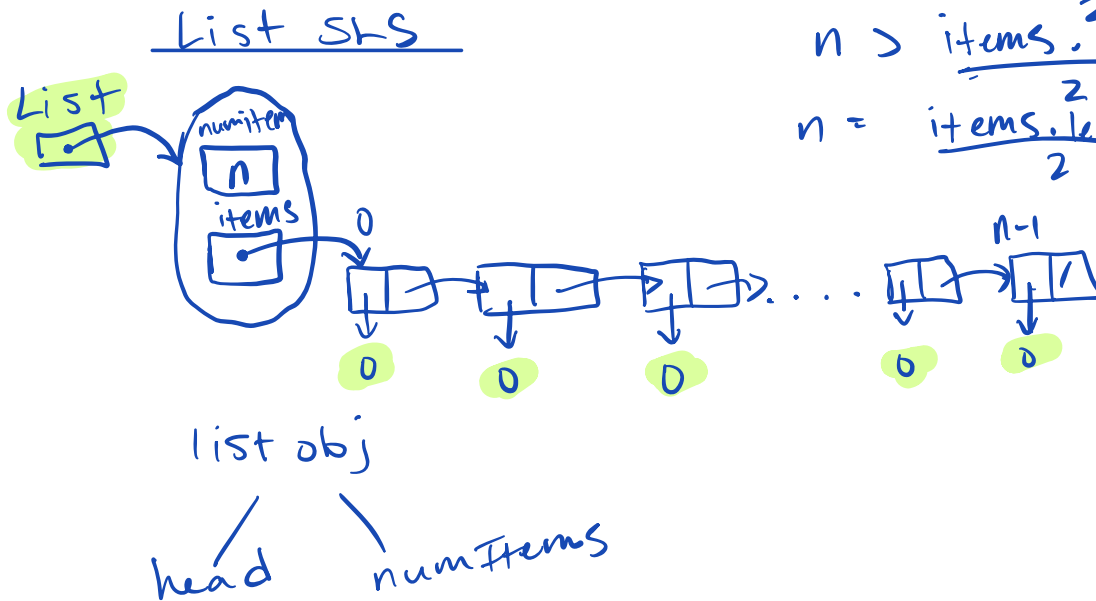 List SLS
n > items.
2
n = items.le
2
List
numitem
n
items
0
n-1
0 0 0 0 0
list obj
head numItems